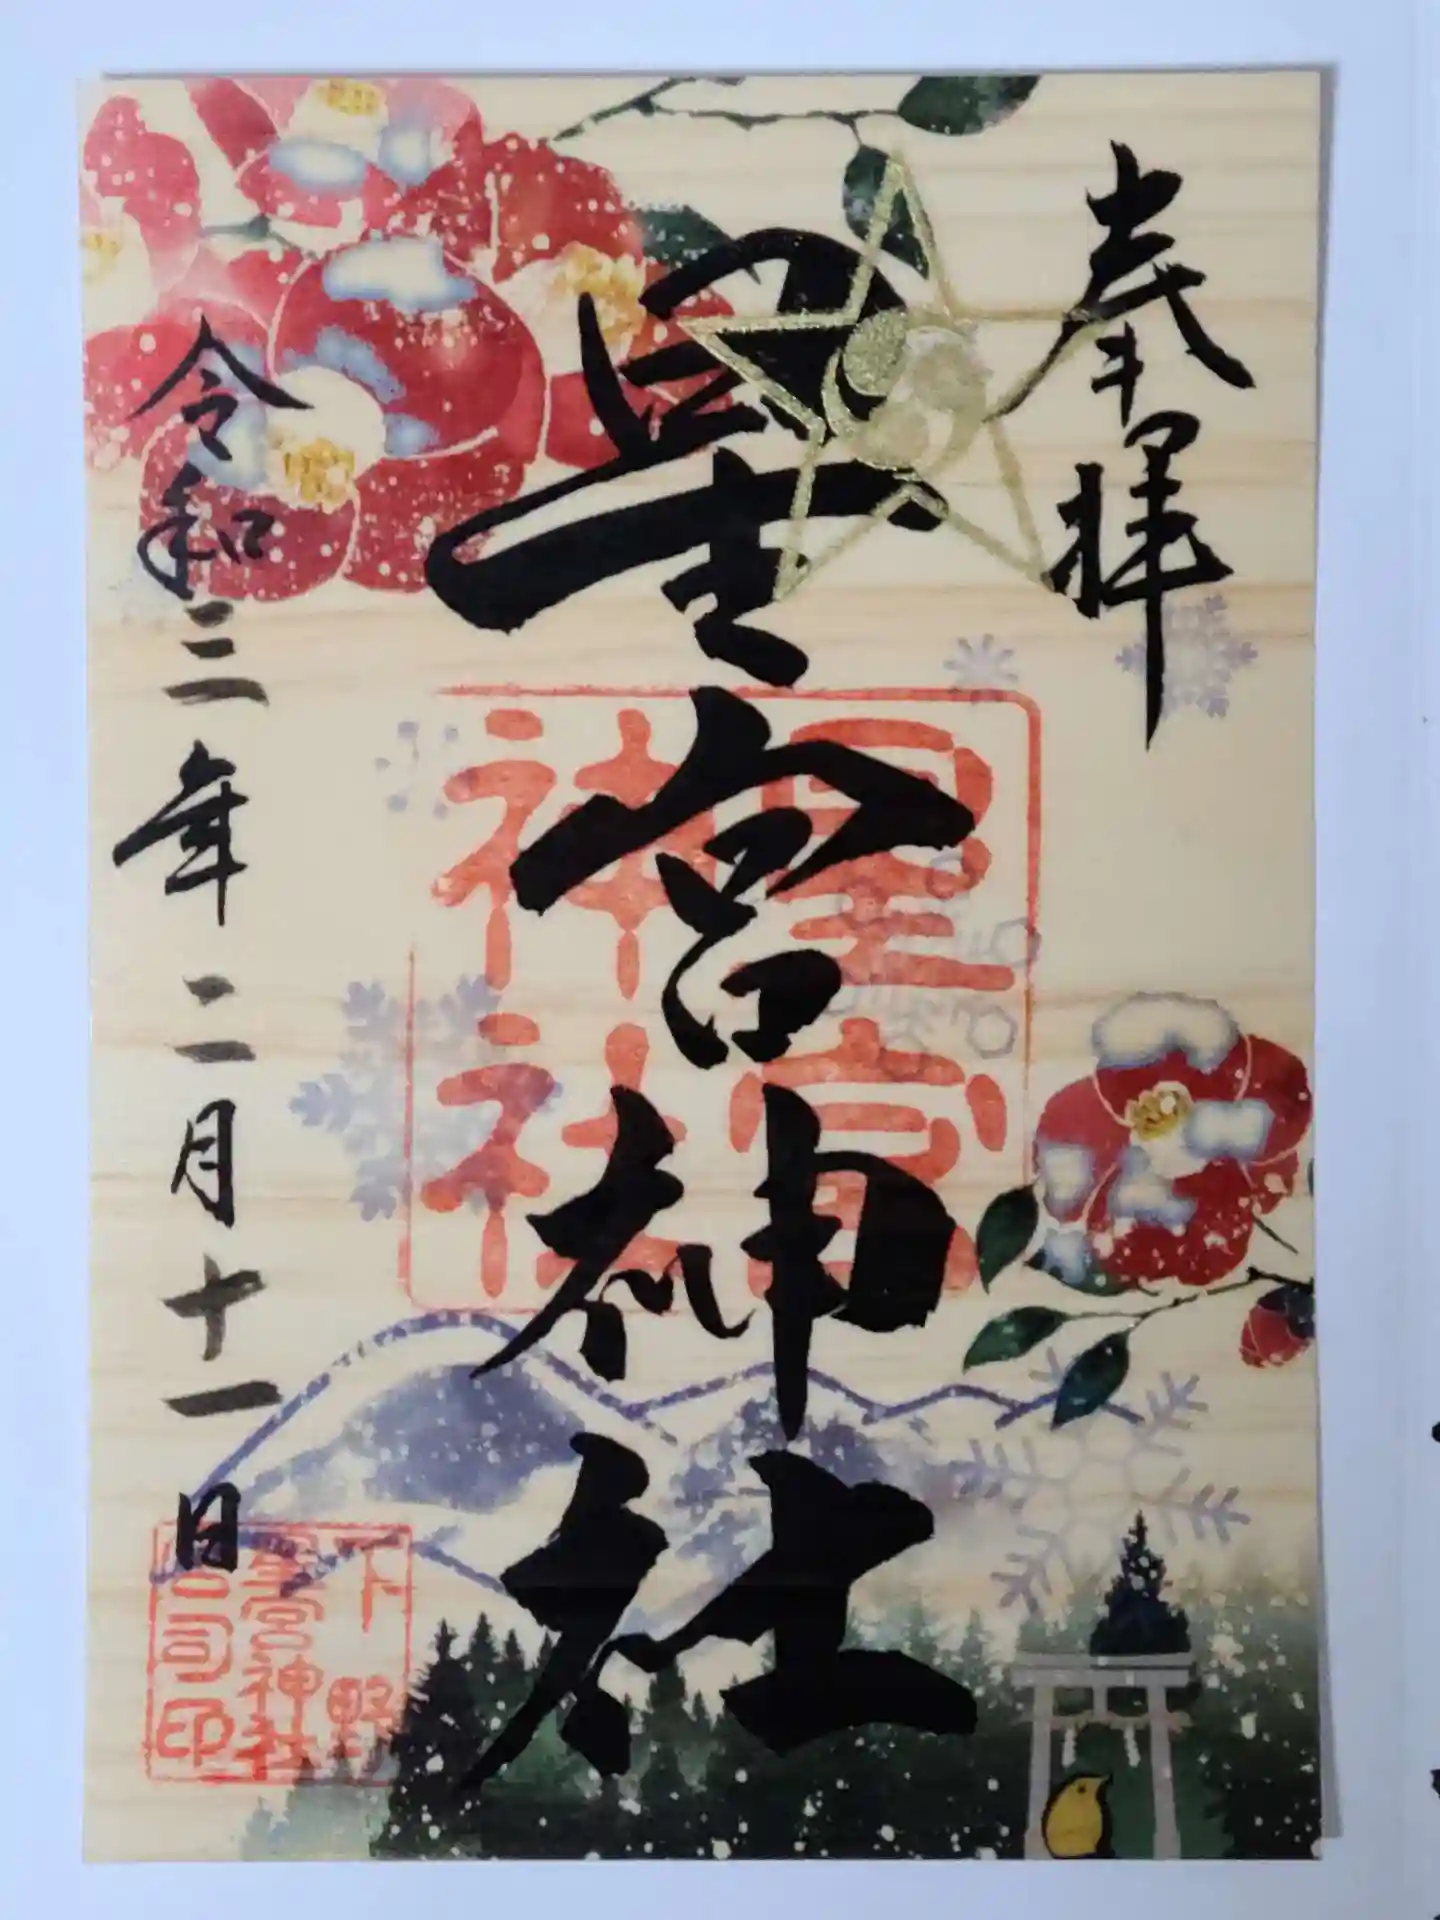 奉拝
星宮神社
星宮
神社
令和三年二月十一日
下野
星宮神社
司印